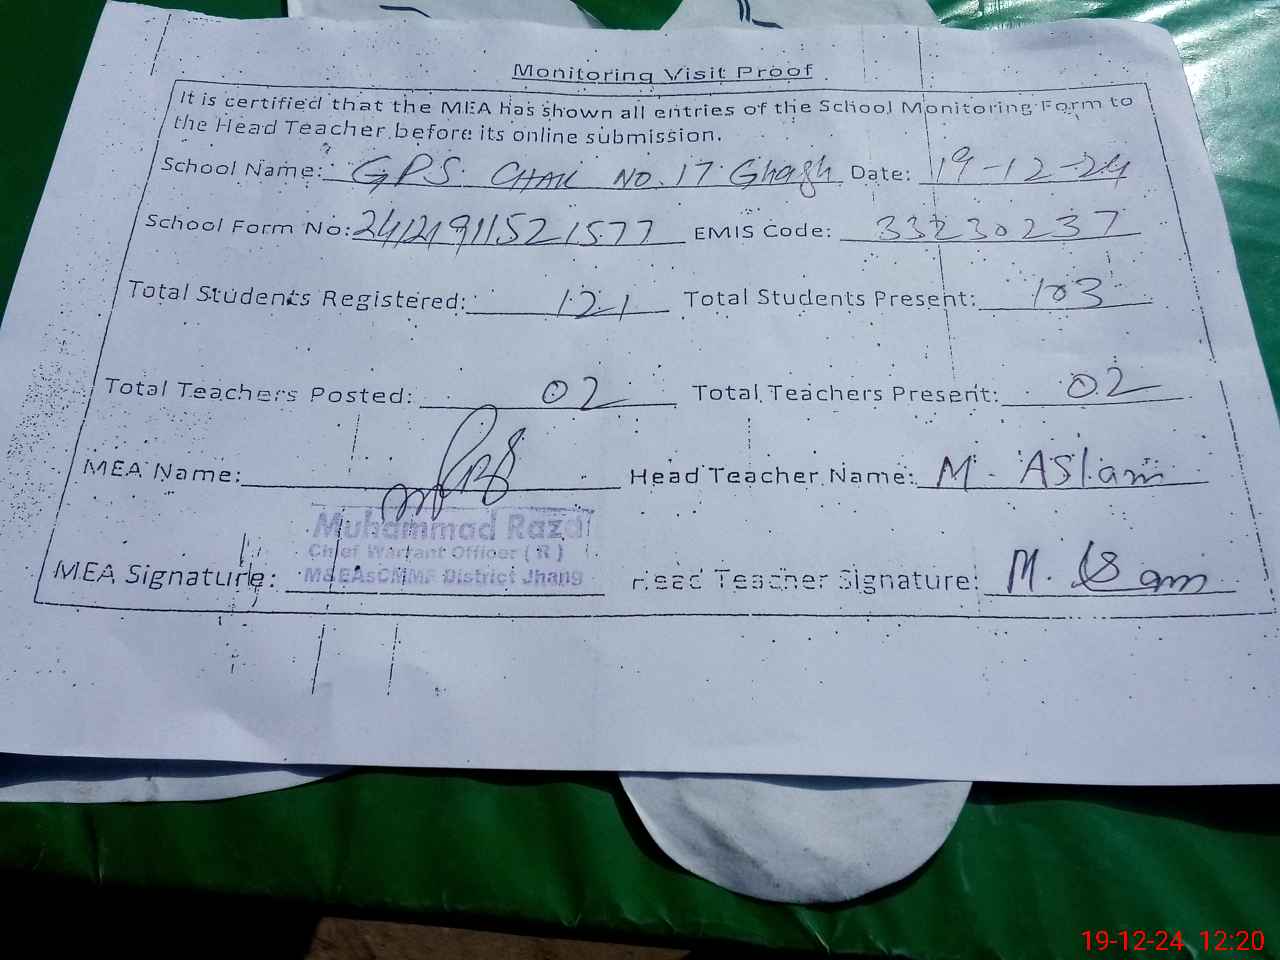 Monitoring Visit Proof
It is certified that the MEA has shown all entries of the School Monitoring Form to
the Head Teacher before its online submission.
School Name: GPS CHAK NO. 17 Ghagh Date: 19-12-24
School Form No: 24121911521577 EMIS Code: 33230237
Total Students Registered: 121 Total Students Present: 103
Total Teachers Posted: 02 Total Teachers Present: 02
MEA Name: Head Teacher Name: M. ASlam
Muhammad Raza
Chief Warrant Officer ( R )
MEA Signature: M&EAsCMMF District Jhang Head Teacher Signature: M. Aslam
19-12-24 12:20